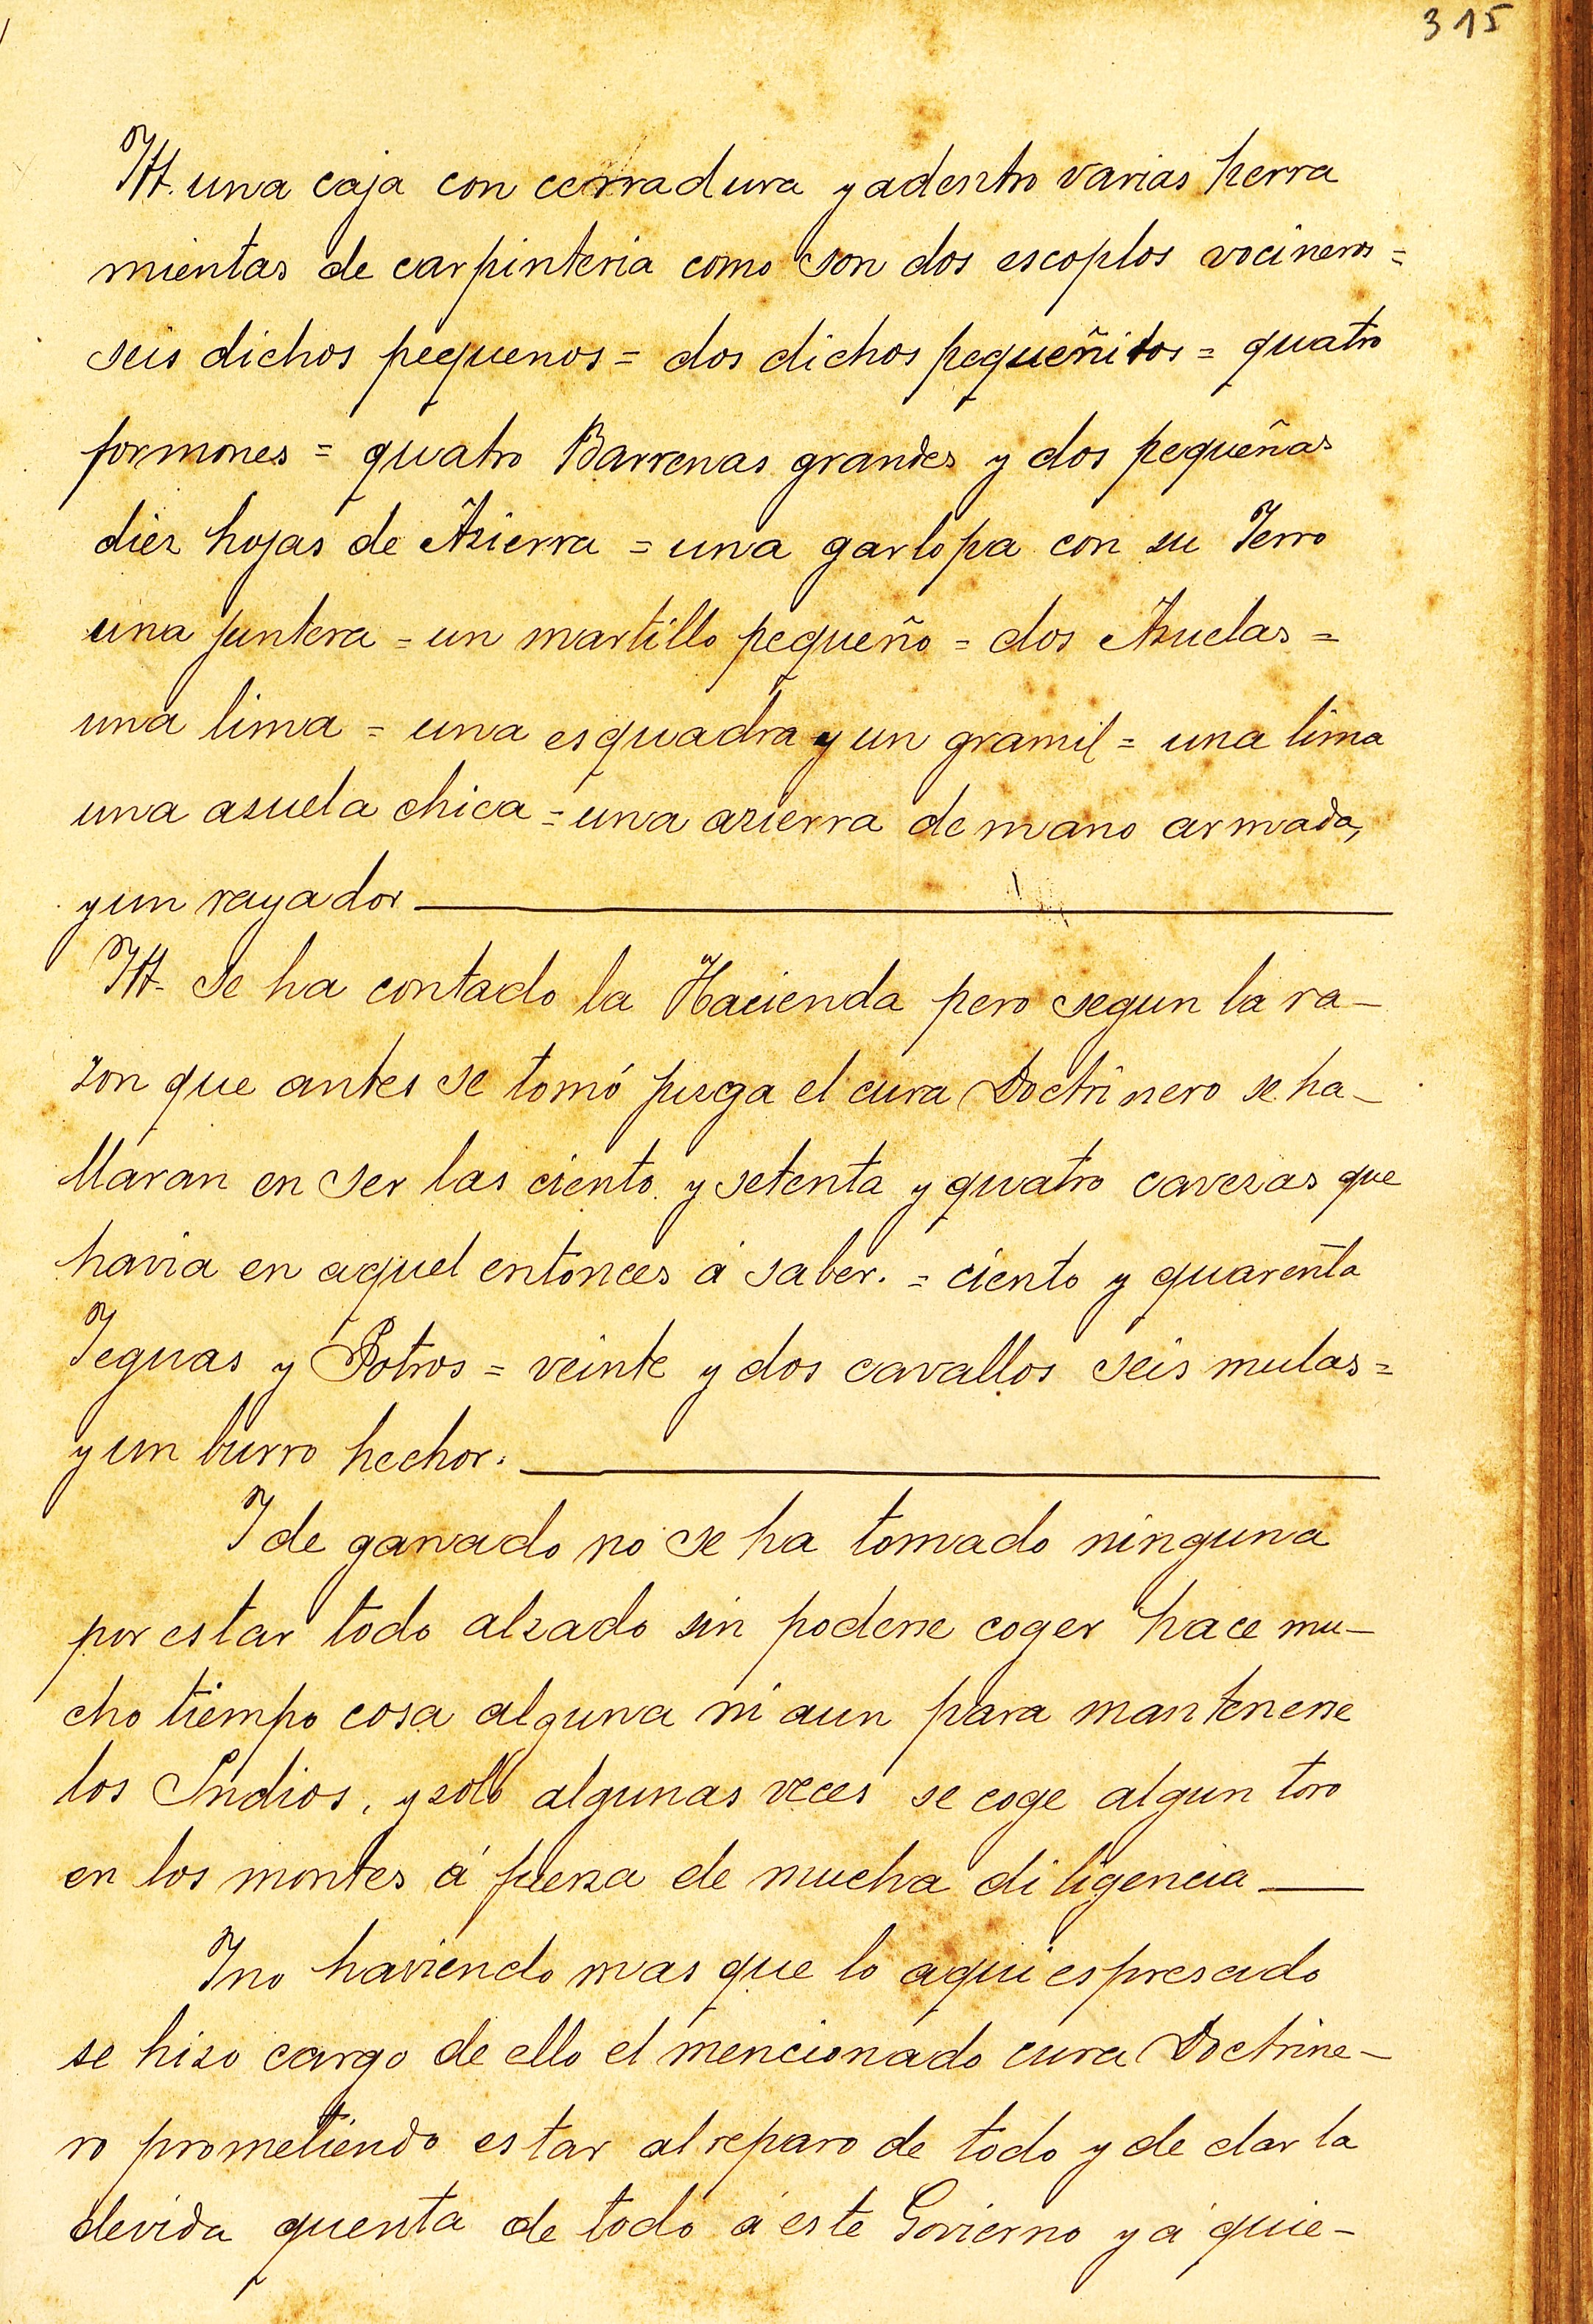 315
Itt. una caja con cerradura y adentro varias herra
mientas de carpinteria como son dos escoplos vocineros =
seis dichos pequenos = dos dichos pequeñitos = quatro
formones = quatro Barrenas grandes y dos pequeñas
diez hojas de Azierra = una garlopa con su Yerro
una juntera = un martillo pequeño = dos Azuelas =
una lima = una esquadra y un gramil = una lima
una asuela chica = una azierra de mano armada,
y un rayador
Itt. Se ha contado la Hacienda pero segun la ra-
zon que antes se tomó juzga el cura Doctrinero se ha-
llaran en ser las ciento y setenta y quatro cavezas que
havia en aquel entonces á saber. = ciento y quarenta
Yeguas y Potros = veinte y dos cavallos seis mulas =
y un burro hechor.
Y de ganado no se ha tomado ninguna
por estar todo alzado sin poderse coger hace mu-
cho tiempo cosa alguna ni aun para mantenerse
los Indios, y solo algunas veces se coge algun toro
en los montes á fuerza de mucha diligencia
Y no haviendo mas que lo aqui espresado
se hizo cargo de ello el mencionado cura Doctrine-
ro prometiendo estar al reparo de todo y de dar la
devida quenta de todo á este Govierno y á quie-